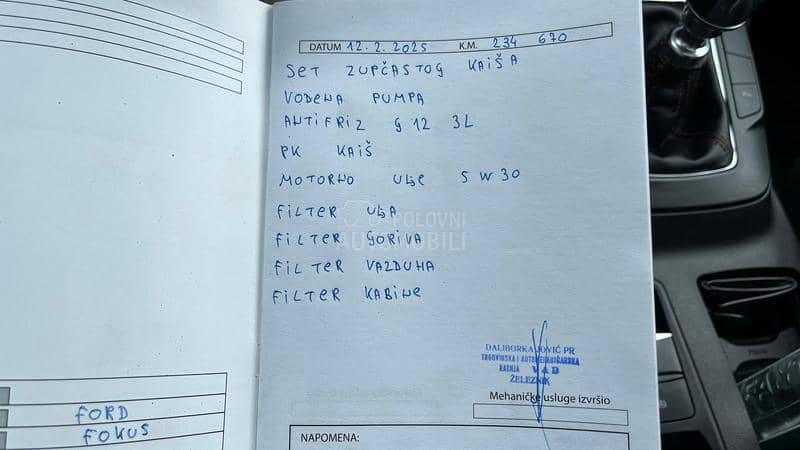 DATUM 12.2.2025 K.M. 234 670
SET ZUPČASTOG KAIŠA
VODENA PUMPA
ANTIFRIZ G 12 3L
PK KAIŠ
MOTORNO ULJE 5 W 30
FILTER ULJA
FILTER GORIVA
FILTER VAZDUHA
FILTER KABINE
POLOVNI
AUTOMOBILI
DALIBORKA JOVIĆ PR
RADNJA VAD
ŽELEZNIK
Mehaničke usluge izvršio
NAPOMENA:
FORD
FOKUS